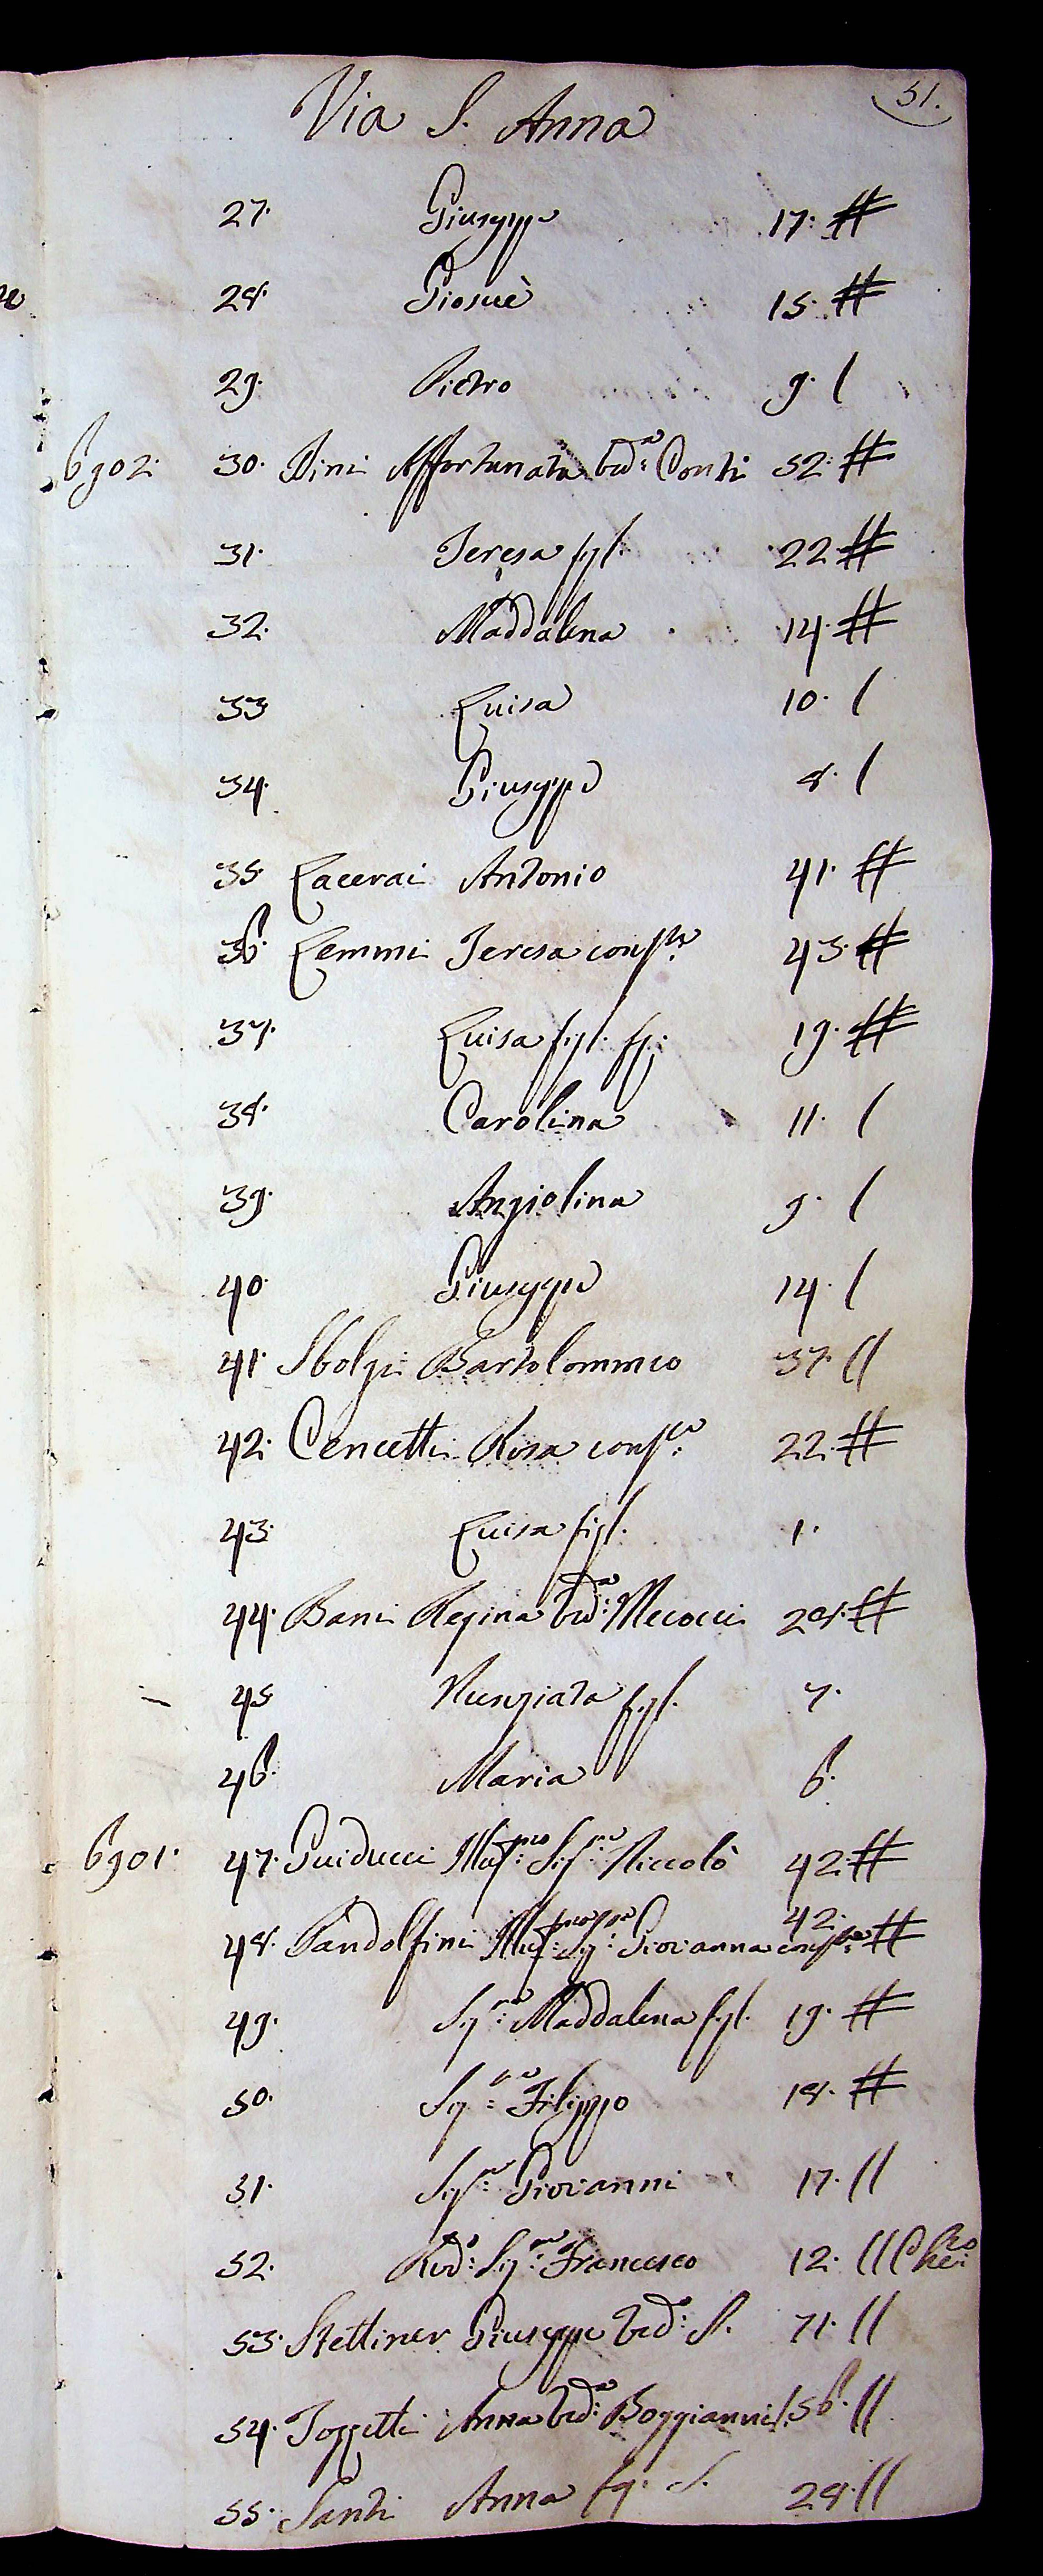 51.
Via S. Anna
27. Giuseppe 17. #
28. Giosuè 15. #
29. Pietro 9. /
6902. 30. Dini Affortunata Ved.a Conti 52. #
31. Teresa figl. 22 #
32. Maddalena 14. #
33 Luisa 10. /
34. Giuseppe 8. /
35. Lacerai Antonio 41. #
36. Lemmi Teresa cons.te 43. #
37. Luisa figl. 19. #
38. Carolina 11. /
39. Angiolina 9. /
40. Giuseppe 14. /
41. Sbolgi Bartolommeo 37. //
42. Cencetti Rosa cons.te 22. #
43. Luisa figl. 1.
44. Bani Regina Ved.a Mecocci 28. #
45 Nunziata figl. 7.
46. Maria 6.
6901. 47. Guiducci Ill.mo Sig.re Niccolò 42. #
48. Pandolfini Ill.ma Sig.ra Giovanna cons.te 42. #
49. Sig.ra Maddalena figl. 19. #
50. Sig.re Filippo 18. #
51. Sig.re Giovanni 17. //
52. Rev.do Sig.re Francesco 12. // Che.co
53. Stettiner Giuseppe Ved.o S. 71. //
54. Tozzetti Anna Ved.a Boggianni S. 56. //
55. Santi Anna S. 28. //